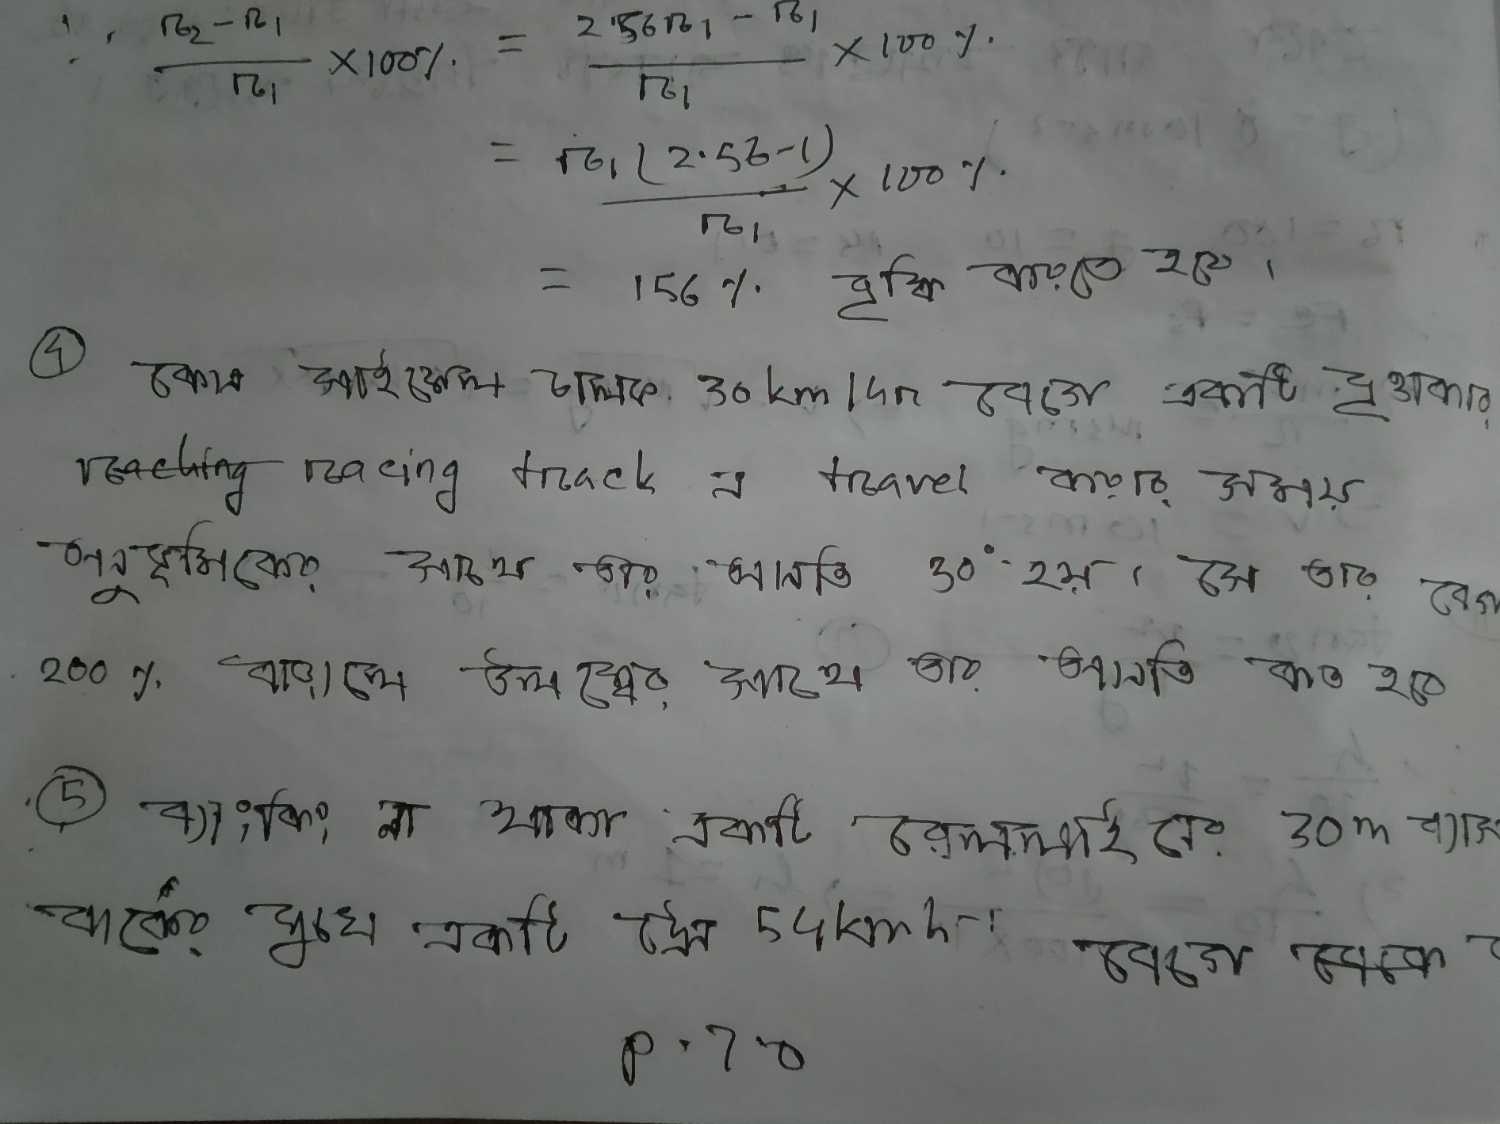 ∴ (r₂ - r₁)/r₁ × 100% = (2.56r₁ - r₁)/r₁ × 100%.
= r₁(2.56-1)/r₁ × 100%.
= 156%. বৃদ্ধি করতে হবে।
④ কোন সাইকেল চালক 30km/hr বেগে একটি বৃত্তাকার
reaching racing track এ travel করার সময়
অনুভূমিকের সাথে তার আনতি 30° হয়। সে তার বেগ
200%. বাড়ালে উলম্বের সাথে তার আনতি কত হবে
⑤ ব্যাংকিং না থাকা একটি রেললাইনের 30m ব্যাস
বার্কের মুখে একটি ট্রেন 54kmh⁻¹ বেগে
P.T.O